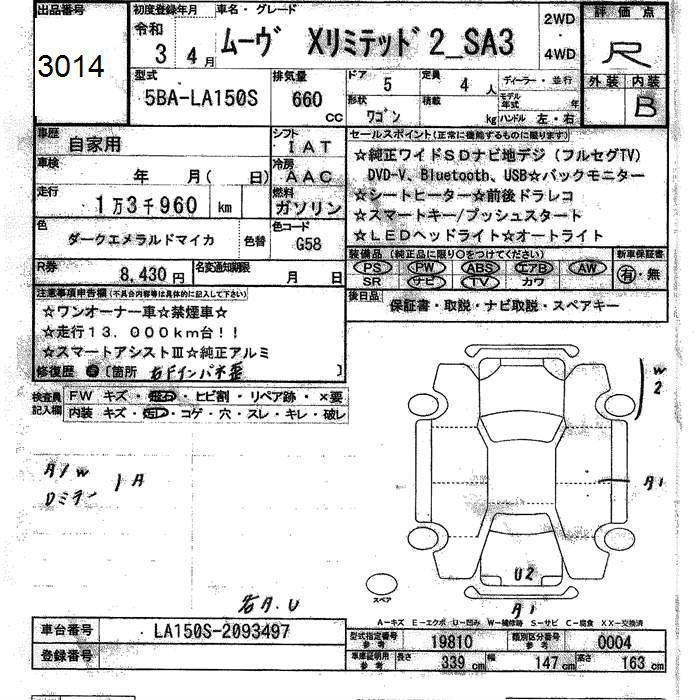 出品番号
3014
初度登録年月 車名・グレード
令和 3 4月 ムーヴ Xリミテッド2_SA3
2WD・4WD
評価点
R
外装 内装
B
型式
5BA-LA150S
排気量
660 cc
ドア 5
定員 4人
ディーラー・並行
形状 ワゴン
積載 kg
モデル年式 年
ハンドル 左・右
車歴 自家用
シフト IAT
車検 年 月( 日)
冷房 AAC
走行 1万3千960 km
燃料 ガソリン
色 ダークエメラルドマイカ 色替
色コード G58
R券 8,430円
名変通知期限 月 日
セールスポイント(正常に機能するものに限ります)
☆純正ワイドSDナビ地デジ(フルセグTV)
DVD-V、Bluetooth、USB☆バックモニター
☆シートヒーター☆前後ドラレコ
☆スマートキー/プッシュスタート
☆LEDヘッドライト☆オートライト
装備品(純正品に限り○をつけてください)
新車保証書
PS PW ABS エアB AW
SR ナビ TV カワ
有・無
後日品 保証書・取説・ナビ取説・スペアキー
注意事項申告欄(不具合内容等は具体的に記入して下さい)
☆ワンオーナー車☆禁煙車☆
☆走行13.000km台!!
☆スマートアシストⅢ☆純正アルミ
修復歴 有 〔箇所 右Fインパネ歪 〕
検査員記入欄
FW キズ・飛石・ヒビ割・リペア跡・×要
内装 キズ・汚レ・コゲ・穴・スレ・キレ・破レ
A/W
1A
Dミラー
右A.U
W2
A1
U2
A1
スペア
A-キズ E-エクボ U-凹み W-補修跡 S-サビ C-腐食 XX-交換済
車台番号 LA150S-2093497
登録番号
型式指定番号参考 19810
類別区分番号参考 0004
車庫証明用参考 長さ 339 cm 幅 147 cm 高さ 163 cm